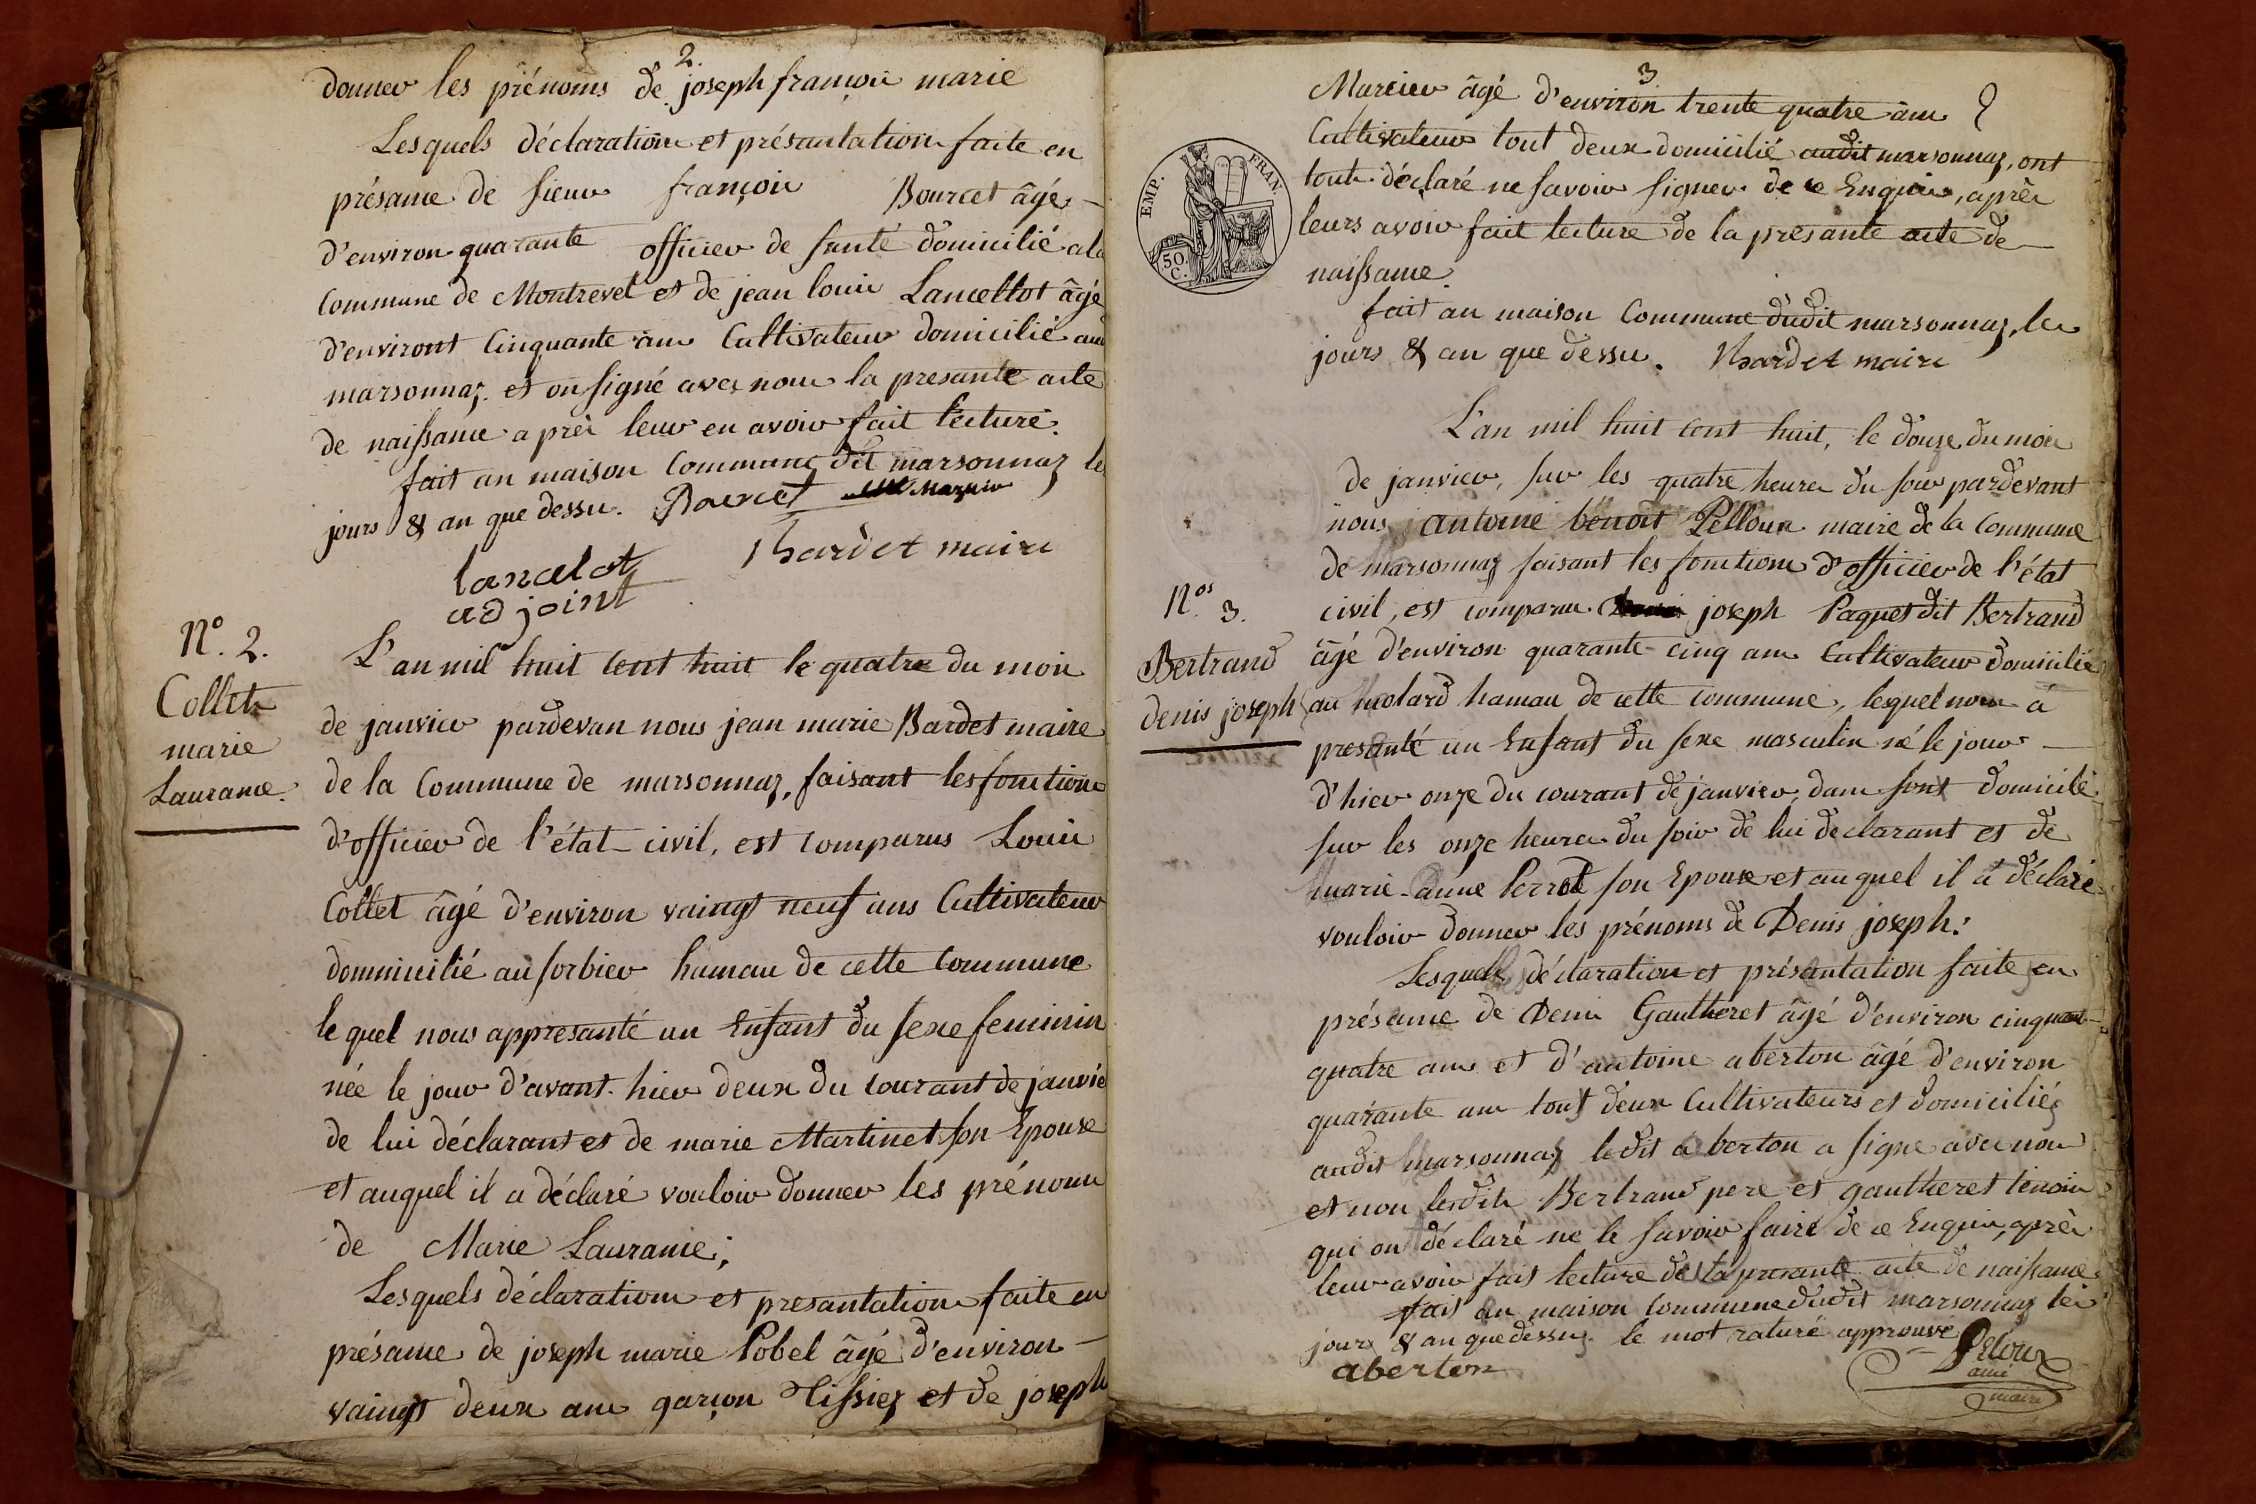 2.
donner les prénoms de joseph françois marie
Lesquels déclarations et présantation faite en
présance de sieur françois Bourcet âgé
d'environ quarante officier de santé domicilié a la
commune de Montrevel et de jean louis Lancellot âgé
d'environt Cinquante ans Cultivateur domicilié au
marsonnaz. et on signé avec nous la presante acte
de naissance après leur en avoir fait lecture.
fait an maison Commune dét marsonnaz les
jours & an que dessu. Bourcet
lancelot Bardet maire
adjoint
N.º 2.
Collet
marie
Laurance.
L'an mil huit cent huit le quatre du mois
de janvier pardevan nous jean marie Bardet maire
de la Commune de marsonnaz, faisant les fonctions
d'officier de l'état civil, est comparus Louis
Collet âgé d'environ vaingt neuf ans Cultivateur
domnicilié au sorbier hamau de cette Commune
le quel nous appresanté un Enfant du sexe feminin
née le jour d'avant hier deux du courant de janvié
de lui déclarant et de marie Martinet son Epouse
et auquel il a déclaré vouloir donner les prénoms
de Marie Laurance;
Lesquels déclarations et presantations faite en
présance de joseph marie Pobel âgé d'environ
vaingt deux ans garçon Tissiez et de joseph
3
Marcier âgé d'environ trente quatre ans
Cultivateur tout deux domicilié audit marsonnaz, ont
tout déclaré ne savoir signer de ce Enquis, après
leurs avoir fait lecture de la presante acte de
naissance.
fait an maison Commune dudit marsonnaz, les
jours & an que dessu. Bardet maire
EMP. FRAN.
50.
C.
L'an mil huit cent huit, le douze du mois
de janvier, sur les quatre heures du soir pardevant
nous antoine benoit Pelloux maire de la Commune
de marsonnaz faisant les fonctions d'officier de l'état
civil, est comparu joseph Paquet dit Bertrand
N.os 3.
Bertrand
denis joseph
âgé d'environ quarante cinq ans Cultivateur domicilié
au molard hamau de cette commune, lequel nous a
presanté un Enfant du sexe masculin né le jour
d'hier onze du courant de janvier, dans sont domicile
sur les onze heures du soir de lui declarant et de
marie anne Perrot son Epouse et au quel il a déclaré
vouloir donner les prénoms de Denis joseph.
Lesquels déclaration et présantation faite en
présance de Denis Gautheret âgé d'environ cinquante
quatre ans et d'antoine aberton âgé d'environ
quarante ans tout deux Cultivateurs et domiciliés
audit marsonnaz ledit aberton a signé avec nous
et non lesdits Bertrand pere et gautheret temoin
qui on déclaré ne le savoir faire de ce Enquis, après
leur avoir fait lecture de la presante acte de naissance
fait an maison commune dudit marsonnaz les
jours & an que dessus. le mot raturé approuvé
aberton Peloux
maire